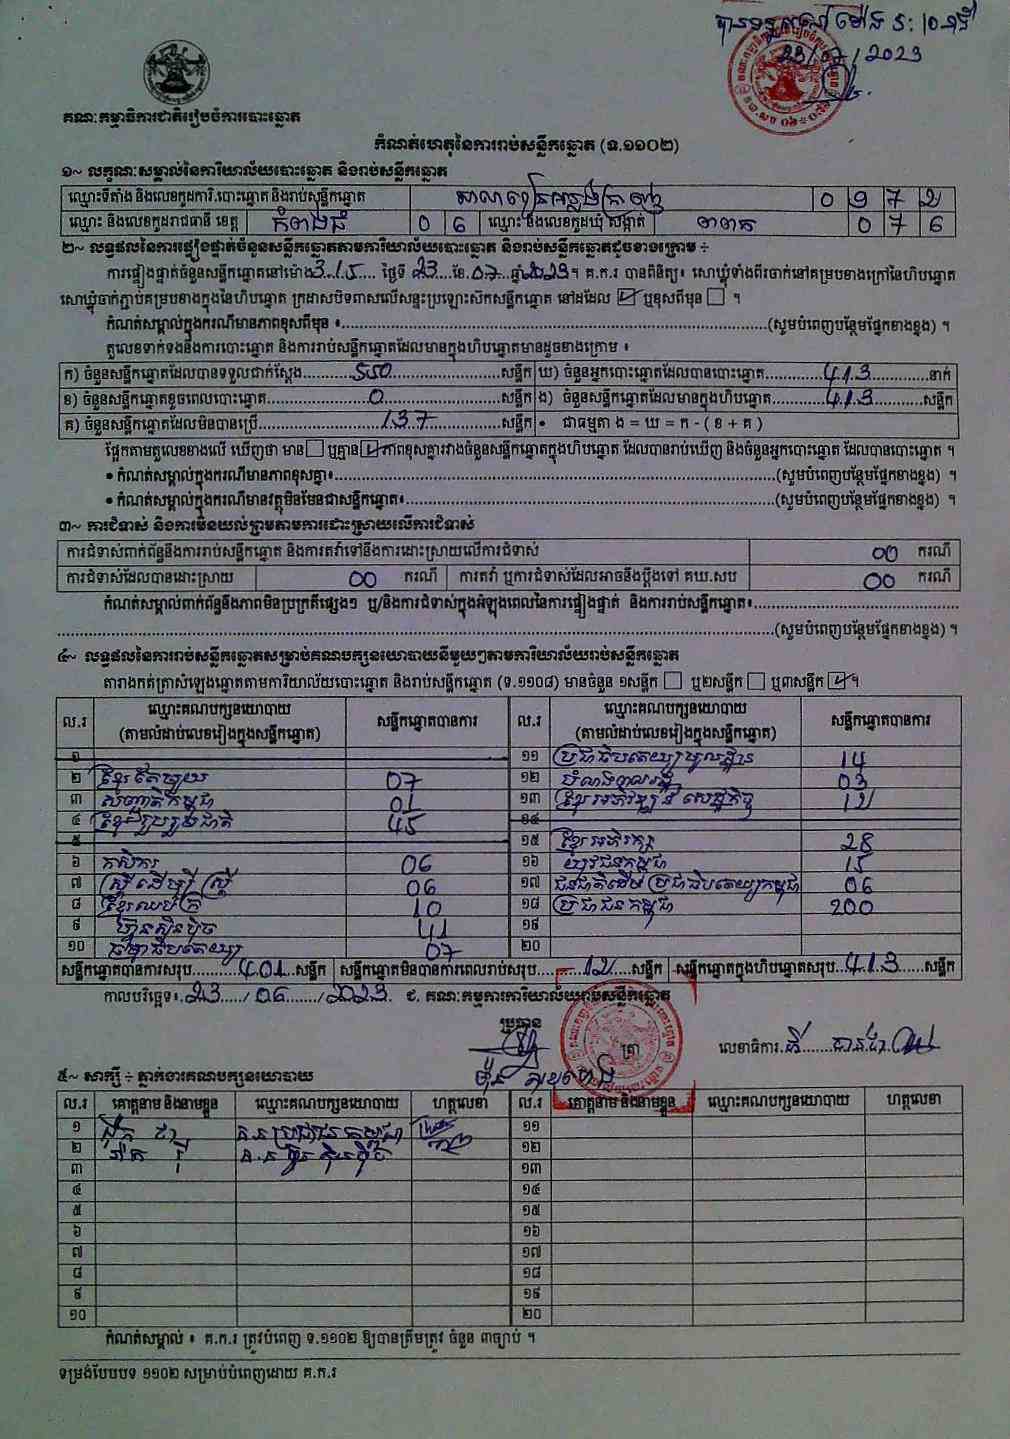 បានទទួលនៅ ម៉ោង ៤:១០ នាទី
23/07/2023
គណៈកម្មាធិការជាតិរៀបចំការបោះឆ្នោត
កំណត់ហេតុនៃការរាប់សន្លឹកឆ្នោត (ទ.១១០២)
១~ លក្ខណៈសម្គាល់នៃការិយាល័យបោះឆ្នោត និងរាប់សន្លឹកឆ្នោត
ឈ្មោះទីតាំង និងលេខកូដការិ.បោះឆ្នោត និងរាប់សន្លឹកឆ្នោត 0 9 7 2
ឈ្មោះ និងលេខកូដរាជធានី ខេត្ត កំពង់ធំ 0 6 ឈ្មោះ និងលេខកូដឃុំ សង្កាត់ 0 7 6
២~ លទ្ធផលនៃការផ្ទៀងផ្ទាត់ចំនួនសន្លឹកឆ្នោតតាមការិយាល័យបោះឆ្នោត និងរាប់សន្លឹកឆ្នោតដូចខាងក្រោម ÷
ការផ្ទៀងផ្ទាត់ចំនួនសន្លឹកឆ្នោតនៅម៉ោង 3:15 ថ្ងៃទី 23 ខែ 07 ឆ្នាំ 2023 ។ គ.ក.រ បានពិនិត្យ៖ សោឃ្លុំទាំងពីរចាក់នៅគម្របខាងក្រៅនៃហិបឆ្នោត
សោឃ្លុំចាក់ភ្ជាប់គម្របខាងក្នុងនៃហិបឆ្នោត ក្រដាសបិទពាសលើសន្ទះប្រឡោះសិកសន្លឹកឆ្នោត នៅដដែល ☑ ឬខុសពីមុន ☐ ។
កំណត់សម្គាល់ក្នុងករណីមានភាពខុសពីមុន ៖ (សូមបំពេញបន្ថែមផ្នែកខាងខ្នង) ។
តួលេខទាក់ទងនឹងការបោះឆ្នោត និងការរាប់សន្លឹកឆ្នោតដែលមានក្នុងហិបឆ្នោតមានដូចខាងក្រោម ៖
ក) ចំនួនសន្លឹកឆ្នោតដែលបានទទួលជាក់ស្តែង 550 សន្លឹក ឃ) ចំនួនអ្នកបោះឆ្នោតដែលបានបោះឆ្នោត 413 នាក់
ខ) ចំនួនសន្លឹកឆ្នោតខូចពេលបោះឆ្នោត 0 សន្លឹក ង) ចំនួនសន្លឹកឆ្នោតដែលមានក្នុងហិបឆ្នោត 413 សន្លឹក
គ) ចំនួនសន្លឹកឆ្នោតដែលមិនបានប្រើ 137 សន្លឹក • ជាធម្មតា ង = ឃ = ក - ( ខ + គ )
ផ្អែកតាមតួលេខខាងលើ ឃើញថា មាន ☐ ឬគ្មាន ☑ ភាពខុសគ្នារវាងចំនួនសន្លឹកឆ្នោតក្នុងហិបឆ្នោត ដែលបានរាប់ឃើញ និងចំនួនអ្នកបោះឆ្នោត ដែលបានបោះឆ្នោត ។
• កំណត់សម្គាល់ក្នុងករណីមានភាពខុសគ្នា៖ (សូមបំពេញបន្ថែមផ្នែកខាងខ្នង) ។
• កំណត់សម្គាល់ក្នុងករណីមានវត្ថុមិនមែនជាសន្លឹកឆ្នោត៖ (សូមបំពេញបន្ថែមផ្នែកខាងខ្នង) ។
៣~ ការជំទាស់ និងការមិនយល់ព្រមតាមការដោះស្រាយលើការជំទាស់
ការជំទាស់ពាក់ព័ន្ធនឹងការរាប់សន្លឹកឆ្នោត និងការតវ៉ាទៅនឹងការដោះស្រាយលើការជំទាស់ 00 ករណី
ការជំទាស់ដែលបានដោះស្រាយ 00 ករណី ការតវ៉ា ឬការជំទាស់ដែលអាចនឹងប្តឹងទៅ គឃ.សប 00 ករណី
កំណត់សម្គាល់ពាក់ព័ន្ធនឹងភាពមិនប្រក្រតីផ្សេងៗ ឬ/និងការជំទាស់ក្នុងអំឡុងពេលនៃការផ្ទៀងផ្ទាត់ និងការរាប់សន្លឹកឆ្នោត៖
(សូមបំពេញបន្ថែមផ្នែកខាងខ្នង) ។
៤~ លទ្ធផលនៃការរាប់សន្លឹកឆ្នោតសម្រាប់គណបក្សនយោបាយនីមួយៗតាមការិយាល័យរាប់សន្លឹកឆ្នោត
តារាងកត់ត្រាសំឡេងឆ្នោតតាមការិយាល័យបោះឆ្នោត និងរាប់សន្លឹកឆ្នោត (ទ.១១០៨) មានចំនួន ១សន្លឹក ☐ ឬ២សន្លឹក ☐ ឬ៣សន្លឹក ☑ ។
ល.រ ឈ្មោះគណបក្សនយោបាយ សន្លឹកឆ្នោតបានការ ល.រ ឈ្មោះគណបក្សនយោបាយ សន្លឹកឆ្នោតបានការ
(តាមលំដាប់លេខរៀងក្នុងសន្លឹកឆ្នោត) (តាមលំដាប់លេខរៀងក្នុងសន្លឹកឆ្នោត)
១ ១១ ប្រជាធិបតេយ្យមូលដ្ឋាន 14
២ ខ្មែរតែមួយ 07 ១២ បំណងពលរដ្ឋ 03
៣ សញ្ជាតិកម្ពុជា 01 ១៣ ខ្មែរអភិវឌ្ឍន៍សេដ្ឋកិច្ច 12
៤ ខ្មែររួបរួមជាតិ 45 ១៤
៥ ១៥ ខ្មែរអភិរក្ស 28
៦ កសិករ 06 ១៦ យុវជនកម្ពុជា 15
៧ ស្ត្រីដើម្បីស្ត្រី 06 ១៧ ជនជាតិដើមប្រជាធិបតេយ្យកម្ពុជា 06
៨ ខ្មែរឈប់ក្រ 10 ១៨ ប្រជាជនកម្ពុជា 200
៩ ហ៊្វុនស៊ិនប៉ិច 41 ១៩
១០ ធម្មាធិបតេយ្យ 07 ២០
សន្លឹកឆ្នោតបានការសរុប 401 សន្លឹក សន្លឹកឆ្នោតមិនបានការពេលរាប់សរុប 12 សន្លឹក សន្លឹកឆ្នោតក្នុងហិបឆ្នោតសរុប 413 សន្លឹក
កាលបរិច្ឆេទ៖ 23/06/2023 ជ. គណៈកម្មការការិយាល័យរាប់សន្លឹកឆ្នោត
ប្រធាន
ត្រា លេខាធិការ
៥~ សាក្សី ÷ ភ្នាក់ងារគណបក្សនយោបាយ
ល.រ គោត្តនាម និងនាមខ្លួន ឈ្មោះគណបក្សនយោបាយ ហត្ថលេខា ល.រ គោត្តនាម និងនាមខ្លួន ឈ្មោះគណបក្សនយោបាយ ហត្ថលេខា
១ គ.ប ប្រជាជនកម្ពុជា ១១
២ គ.ប ហ៊្វុនស៊ិនប៉ិច ១២
៣ ១៣
៤ ១៤
៥ ១៥
៦ ១៦
៧ ១៧
៨ ១៨
៩ ១៩
១០ ២០
កំណត់សម្គាល់ ៖ គ.ក.រ ត្រូវបំពេញ ទ.១១០២ ឱ្យបានត្រឹមត្រូវ ចំនួន ៣ច្បាប់ ។
ទម្រង់បែបបទ ១១០២ សម្រាប់បំពេញដោយ គ.ក.រ